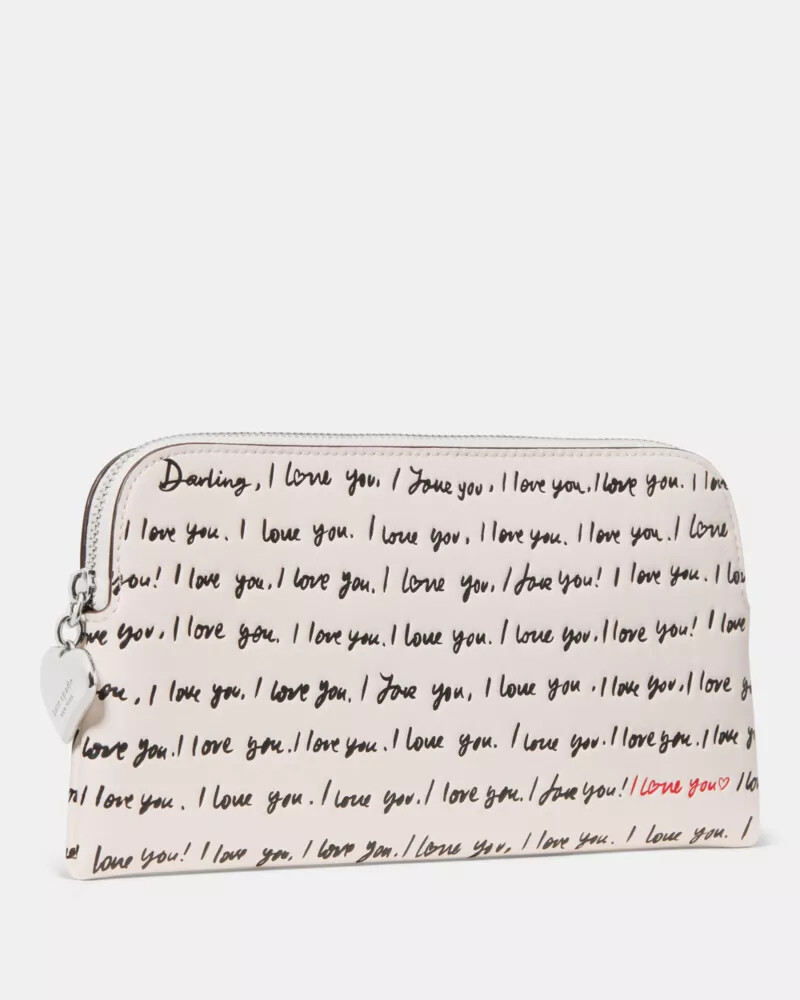 Darling, I love you. I love you. I love you. I love you. I love
I love you. I love you. I love you, I love you. I love you. I love
you! I love you. I love you. I love you, I love you! I love you. I lo
ve you, I love you. I love you. I love you. I love you. I love you! I love
ou, I love you, I love you. I love you, I love you. I love you, I love y
I love you. I love you. I love you. I love you. I love you. I love you. I love y
I love you. I love you. I love you. I love you. I love you! I love you♡ I lo
love you! I love you, I love you. I love you, I love you. I love you. I
kate spade
NEW YORK